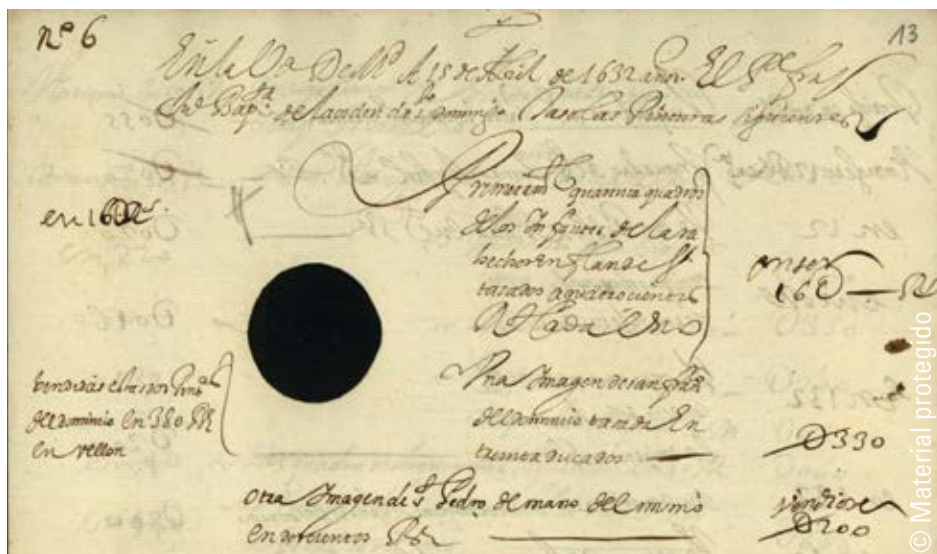 nº 6
13
En la Vª De Mº A 15 de Abril de 1632 años El Pe fray
Juº Bapta de la orden de sto Domingo Taso las Pinturas siguientes
en 16
Primeramte quarenta quadros
de los Infantes de Lara
hechos en Flandes
tasados a quatrocientos
Rs Cada Uno
16
bendidas
del dominico en 380 Rs
en vellon
Una Imagen de san Franco
del dominico tasada En
treinta ducados
D330
Otra Imagen de s Pedro de mano del mismo
en docientos Rs
vendiose
D200
© Material protegido